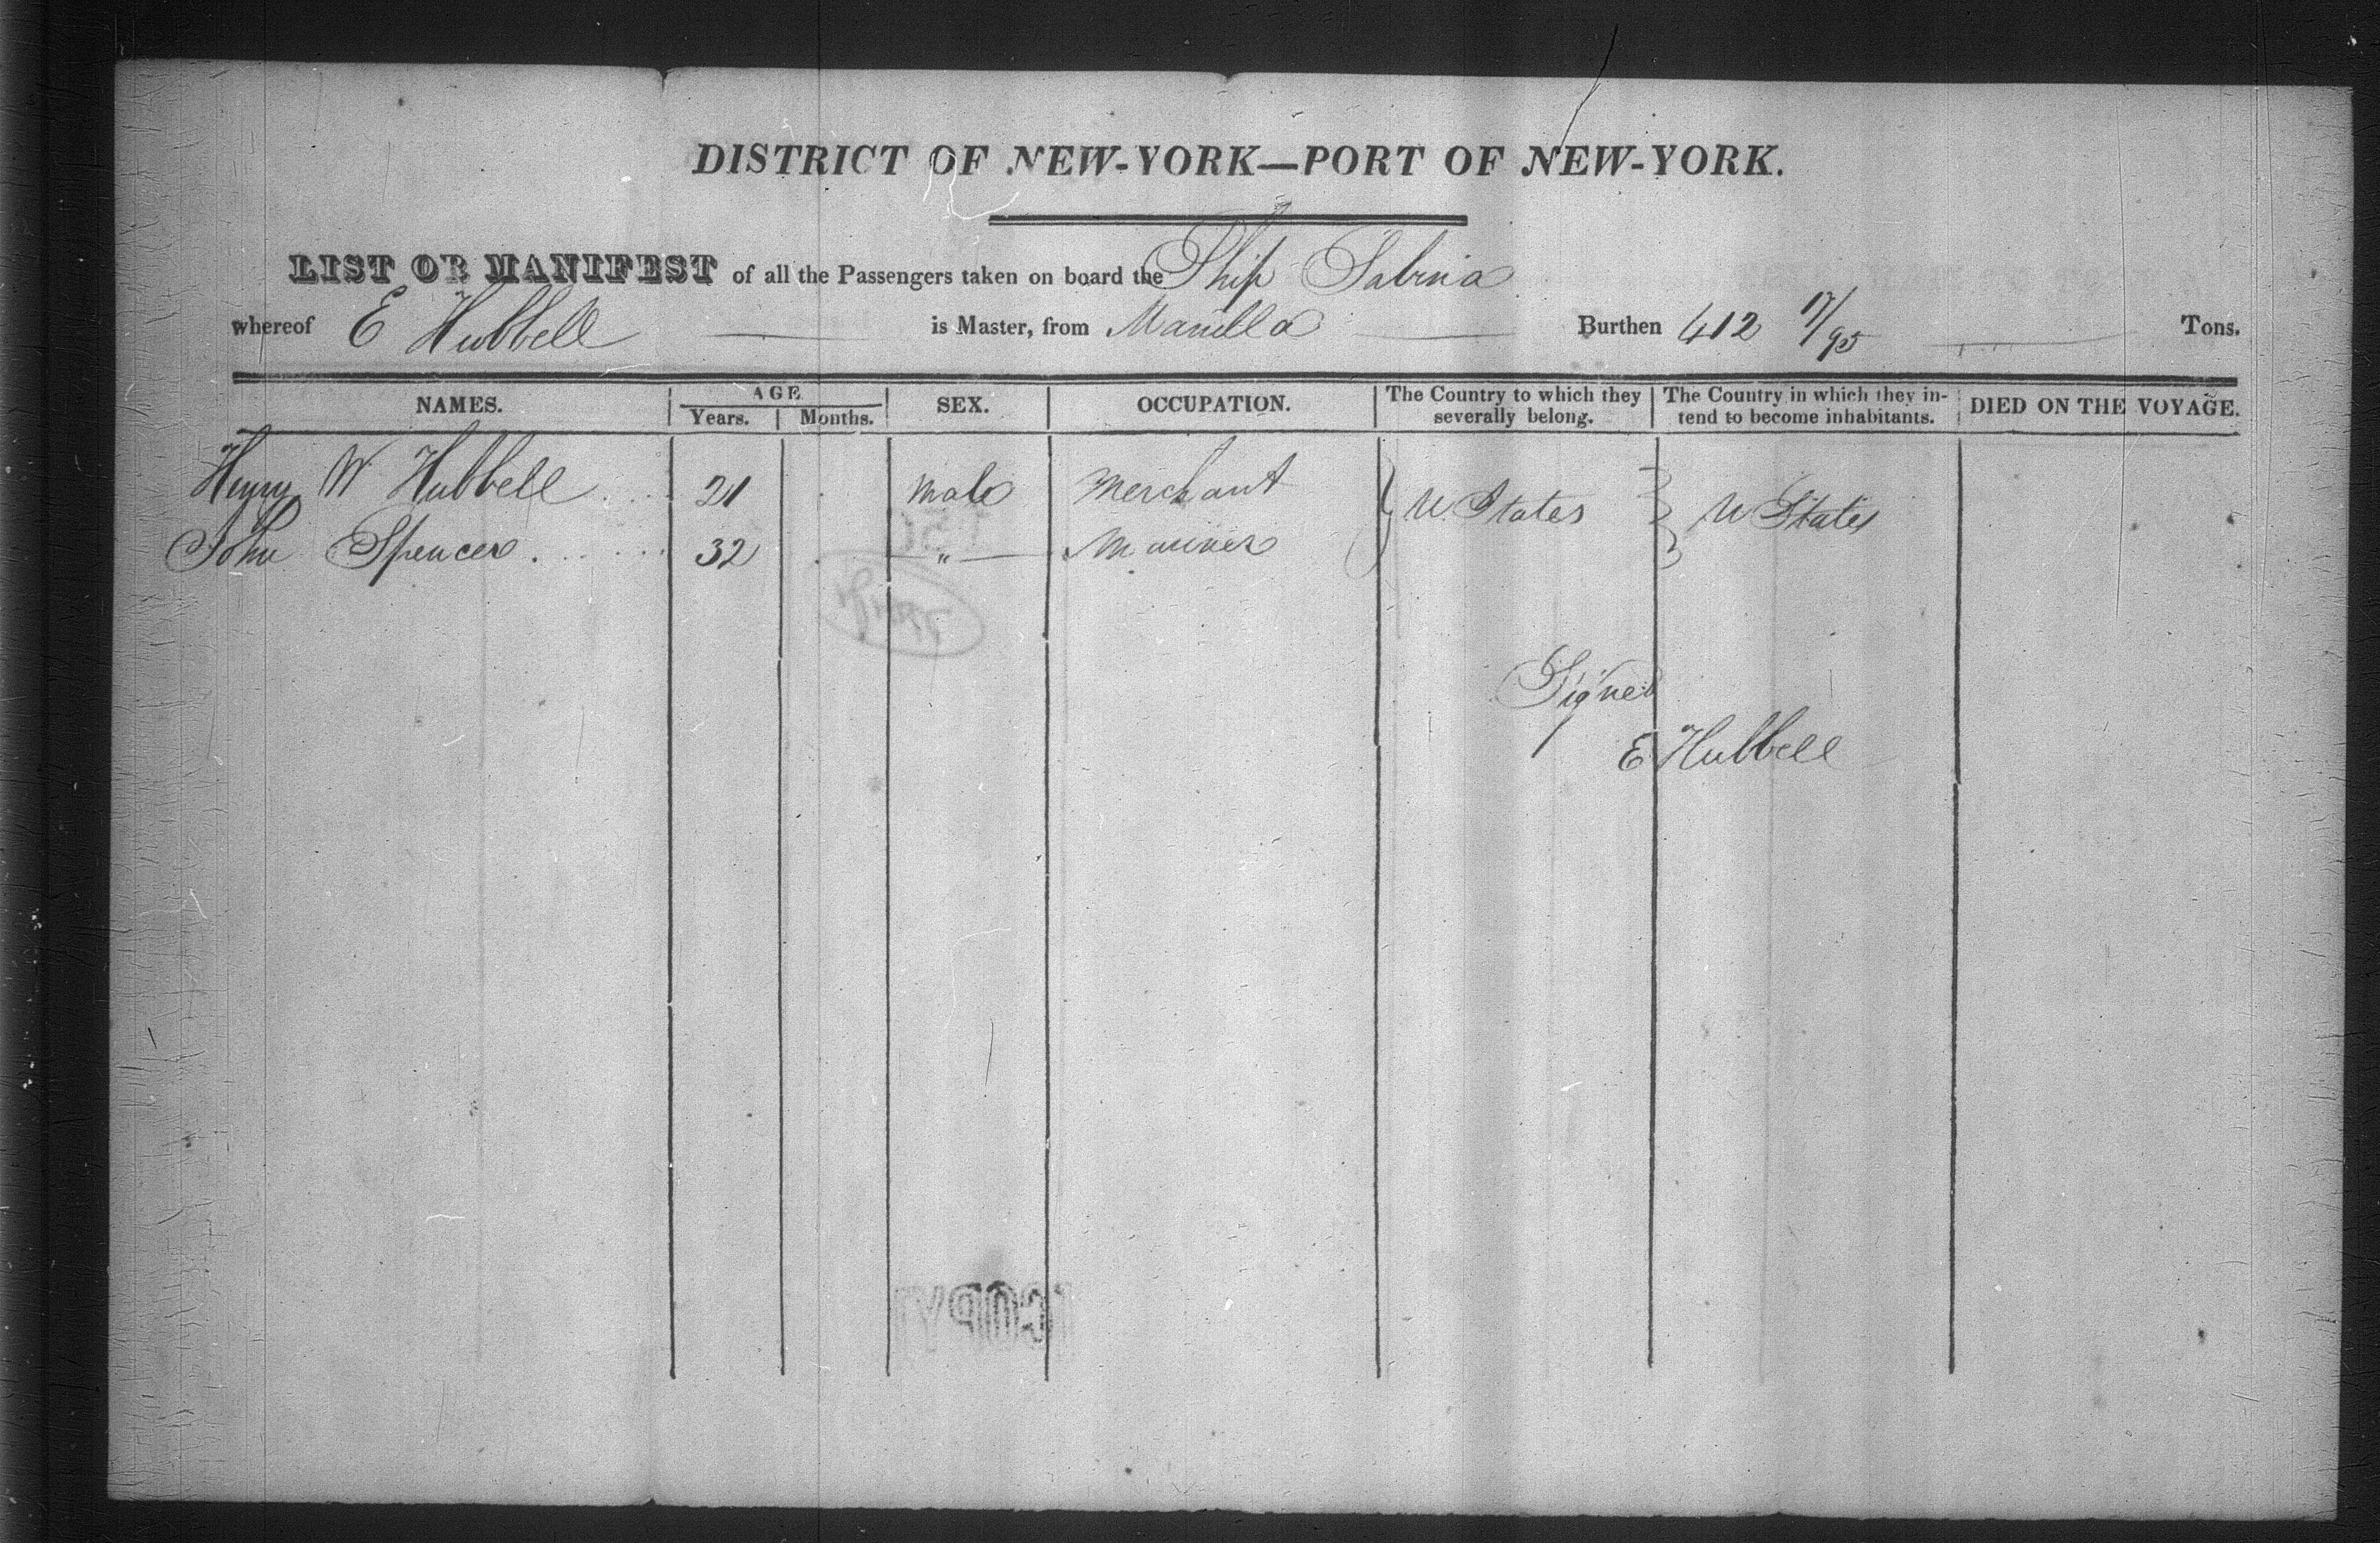 DISTRICT OF NEW-YORK—PORT OF NEW-YORK.
LIST OR MANIFEST of all the Passengers taken on board the Ship Sabina
whereof E Hubbell is Master, from Manilla Burthen 412 17/95 Tons.
NAMES. AGE SEX. OCCUPATION. The Country to which they severally belong. The Country in which they in-tend to become inhabitants. DIED ON THE VOYAGE.
Years. Months.
Henry W Hubbell 21 Male Merchant U States U States
John Spencer 32 " Mariner
Signed
E Hubbell
COPY